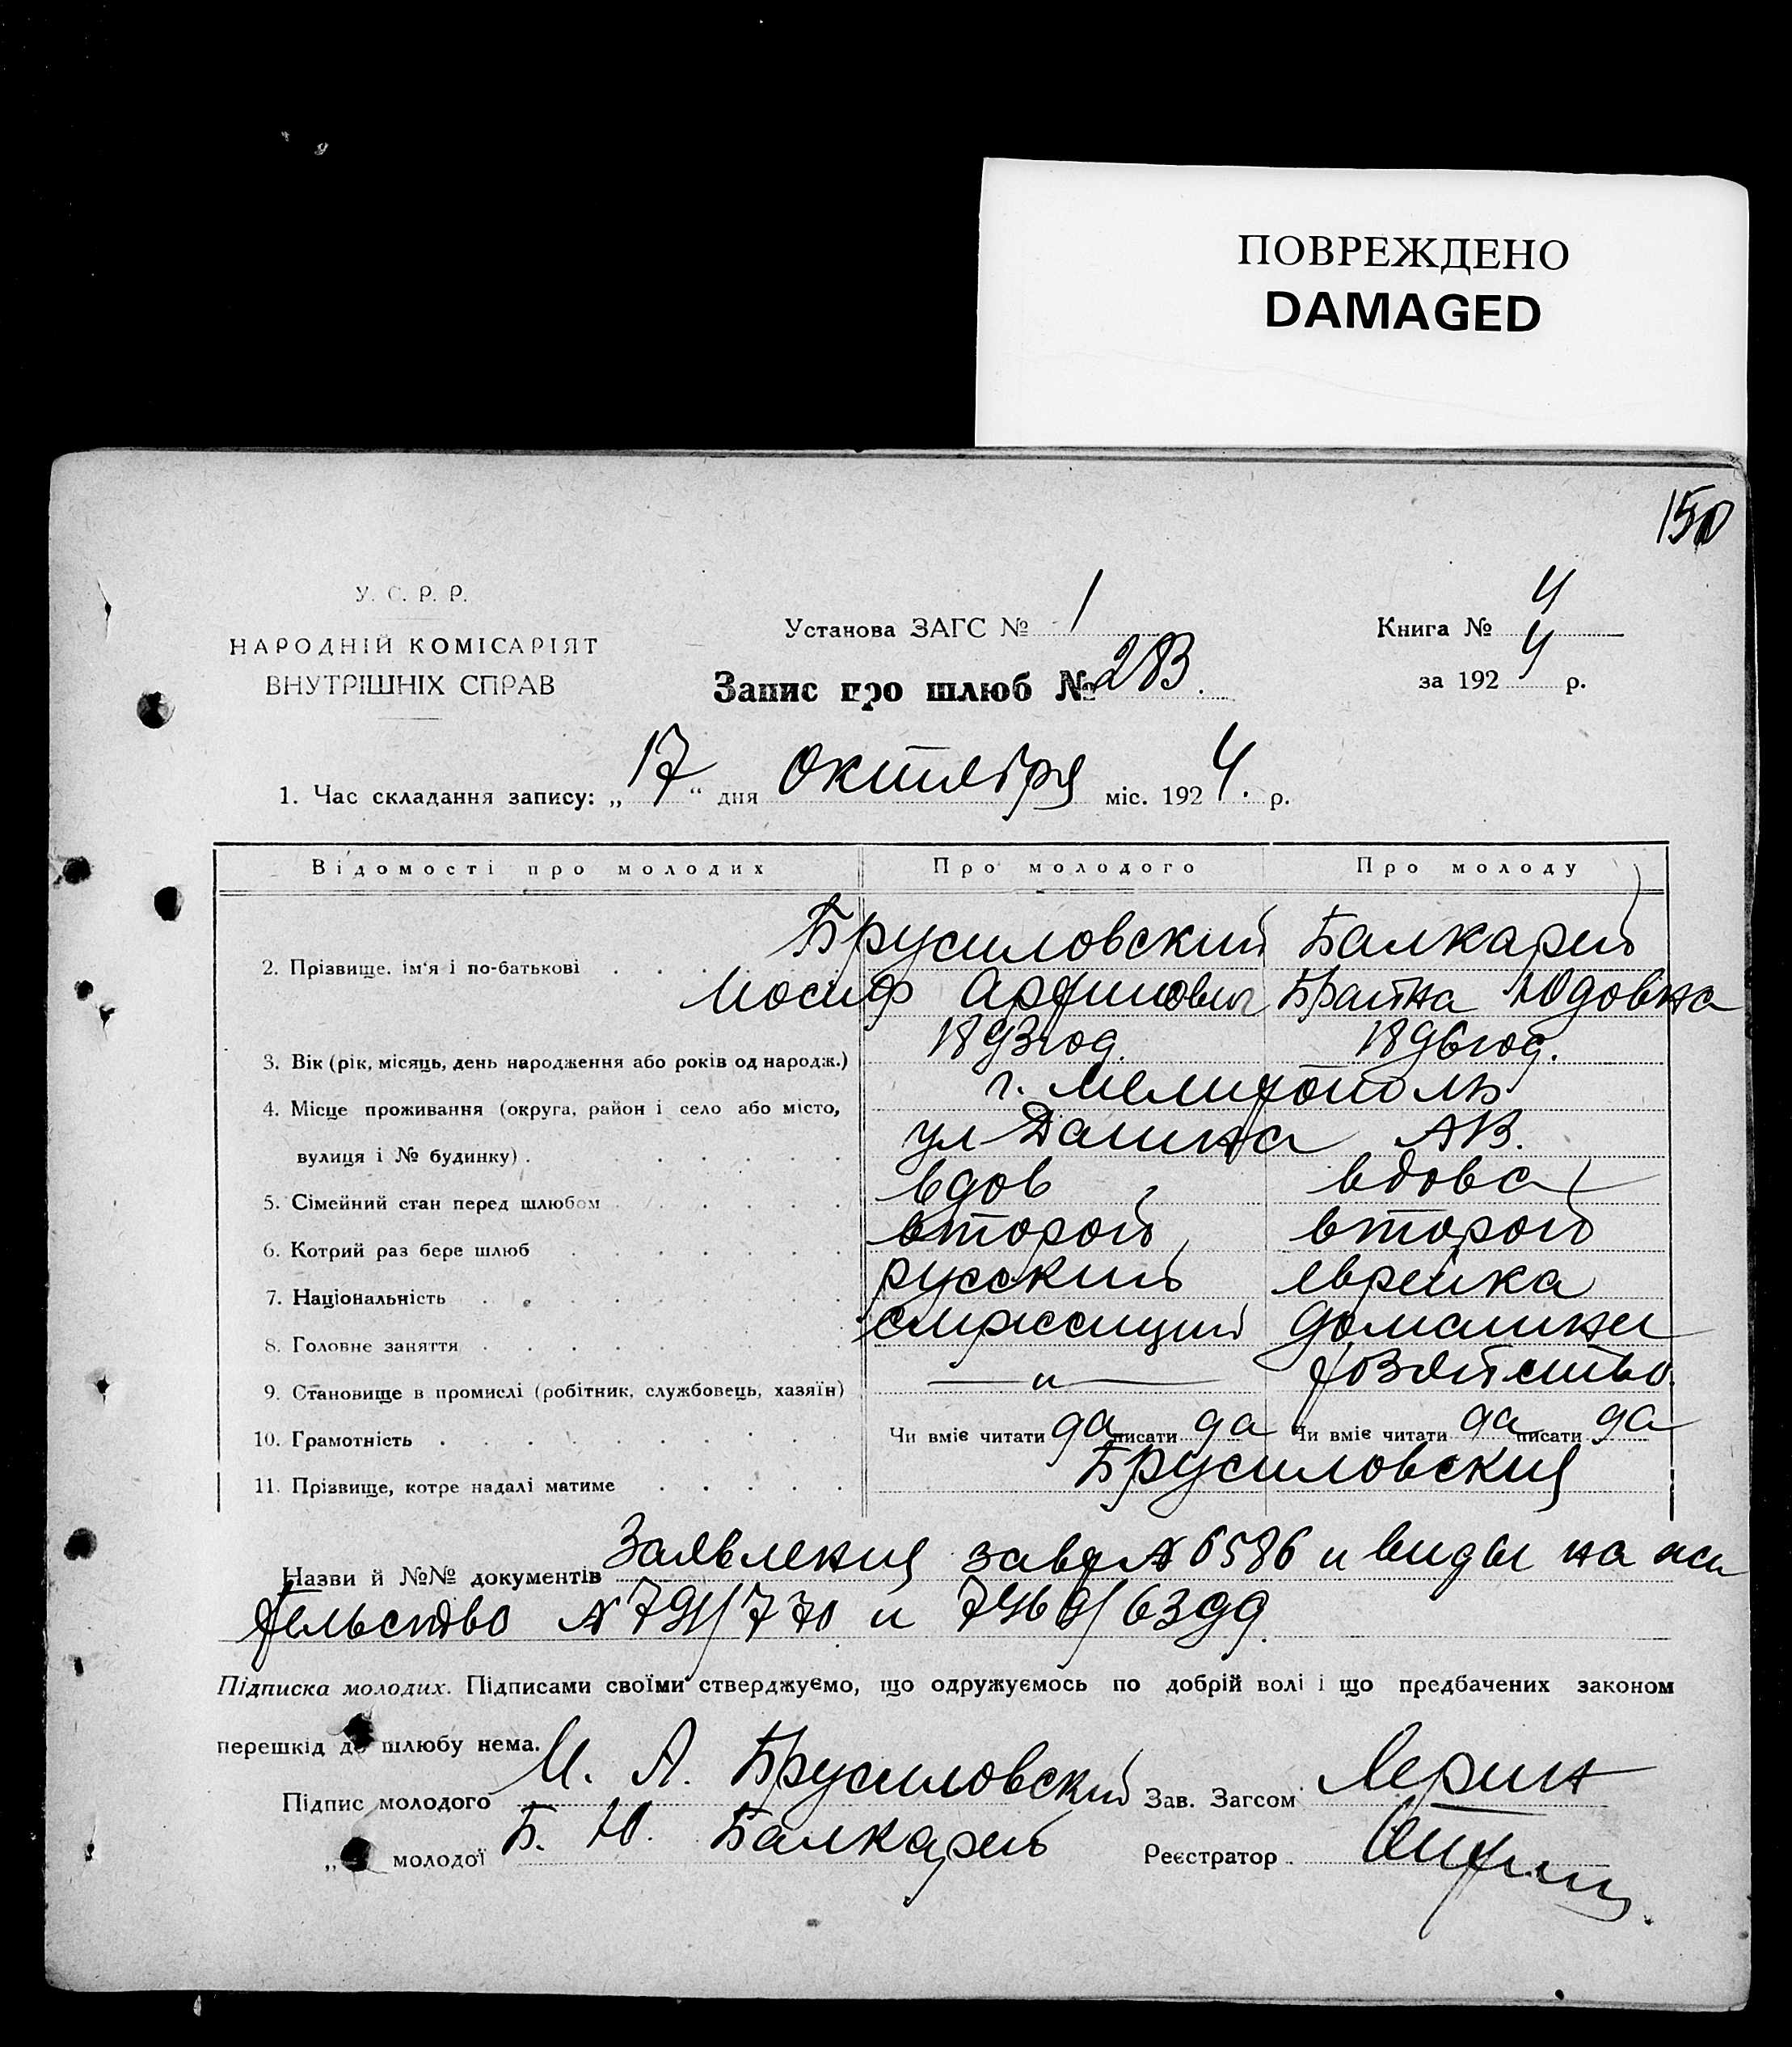 ПОВРЕЖДЕНО
DAMAGED
150
У. С. Р. Р.
НАРОДНІЙ КОМІСАРІЯТ
ВНУТРІШНІХ СПРАВ
Установа ЗАГС № 1
Книга № 4
Запис про шлюб № 283.
за 1924 р.
1. Час складання запису: „17“ дня Октября міс. 1924. р.
Відомості про молодих Про молодого Про молоду
Брусиловский Балкарей
2. Прізвище, ім'я і по-батькові
Иосиф Брайна Юдовна
1893 год. 1896 год.
3. Вік (рік, місяць, день народження або років од народж.)
г. Мелитополь
4. Місце проживання (округа, район і село або місто,
ул
вулиця і № будинку)
вдов вдова
5. Сімейний стан перед шлюбом
второй второй
6. Котрий раз бере шлюб
русский еврейка
7. Національність
служащий домашнее
8. Головне заняття
— „ — хозяйство.
9. Становище в промислі (робітник, службовець, хазяїн)
10. Грамотність Чи вміє читати да писати да Чи вміє читати да писати да
Брусиловские
11. Прізвище, котре надалі матиме
Назви й №№ документів Заявления № 6586 и виды на жи
тельство № 791/770 и 7460/6399.
Підписка молодих. Підписами своїми стверджуємо, що одружуємось по добрій волі і що предбачених законом
перешкід до шлюбу нема.
Підпис молодого И. А. Брусиловский Зав. Загсом
„ молодої Б. Ю. Балкарей Реєстратор